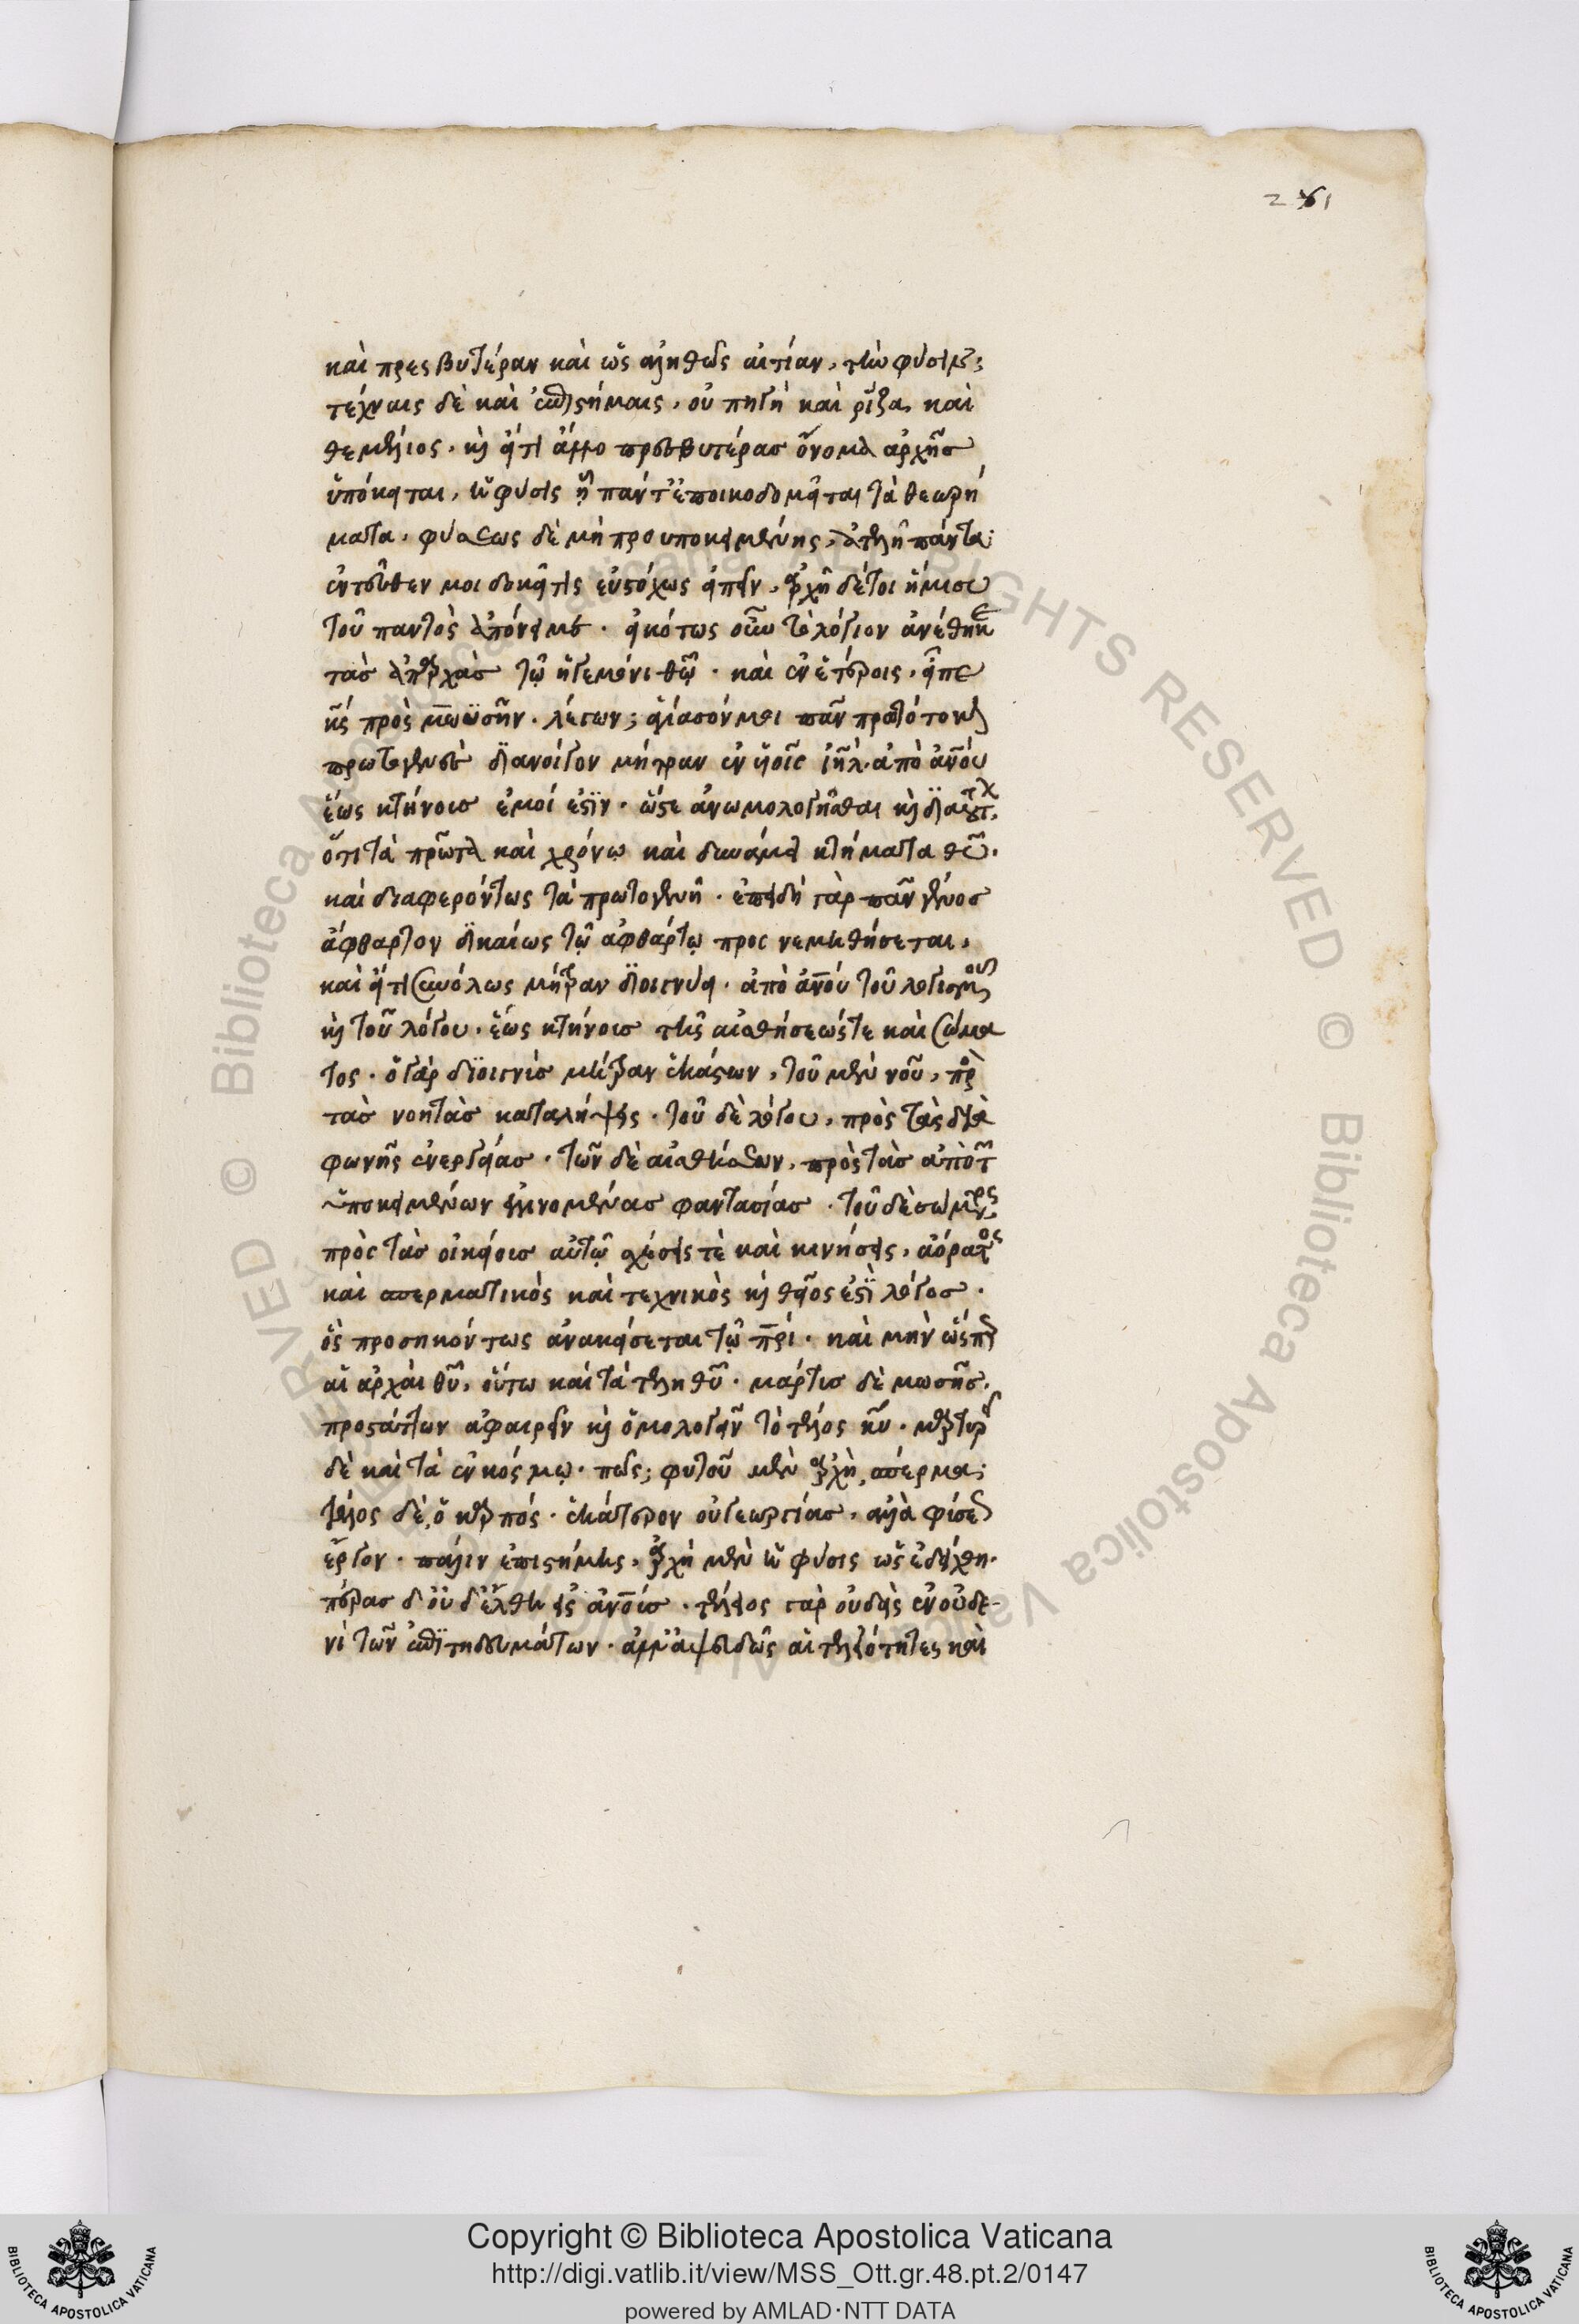 261
καὶ πρεσβυτέραν καὶ ὡς ἀληθῶς αἰτίαν, τὴν φύσιν;
τέχναις δὲ καὶ ἐπιστήμαις, οὐ πηγὴ καὶ ῥίζα καὶ
θεμέλιος, καὶ εἴ τι ἄλλο πρεσβυτέρας ὄνομα ἀρχῆς
ὑπόκειται, ἡ φύσις ᾗ πάντ' ἐποικοδομεῖται τὰ θεωρή
ματα, φύσεως δὲ μὴ προυποκειμένης, ἀτελῆ πάντα;
ἐντεῦθεν μοι δοκεῖ τὶς εὐστόχως εἰπεῖν, ἀρχὴ δέτοι ἥμισυ
τοῦ παντὸς ἀπόνειμε · εἰκότως οὖν τὸ λόγιον ἀνέθηκε
τὰς ἀπαρχὰς τῷ ἡγεμόνι θῷ · καὶ ἐν ἑτέροις, εἶπε
κς πρὸς μωϋσῆν · λέγων; ἁγίασόν μοι πᾶν πρωτότοκον
πρωτογενὲς διανοῖγον μήτραν ἐν υἱοῖς ιηλ · ἀπὸ ανου
ἕως κτήνους ἐμοί ἐστιν · ὥστε ἀνωμολογῆσθαι καὶ διατούτων,
ὅτι τὰ πρῶτα καὶ χρόνῳ καὶ δυνάμει κτήματα θυ.
καὶ διαφερόντως τὰ πρωτογενῆ · ἐπειδὴ γὰρ πᾶν γένος
ἄφθαρτον δικαίως τῷ ἀφθάρτῳ προς νεμηθήσεται,
καὶ εἴ τι συνόλως μήτραν διοιγνύει · ἀπὸ ανου τοῦ λογισμοῦ
καὶ τοῦ λόγου · ἕως κτήνους τῆς αἰσθήσεώς τε καὶ σώμα
τος · ὁ γάρ διοιγνὺς μήτραν ἑκάστων, τοῦ μὲν νοῦ, πρὸς
τὰς νοητὰς καταλήψεις · τοῦ δὲ λόγου, πρὸς τὰς διὰ
φωνῆς ἐνεργείας · τῶν δὲ αἰσθήσεων, πρὸς τὰς ἀπὸ τῶν
ὑποκειμένων ἐγγινομένας φαντασίας · τοῦ δὲ σώματος
πρὸς τὰς οἰκείους αὐτῷ σχέσεις τὲ καὶ κινήσεις, ἀόρατος
καὶ σπερματικὸς καὶ τεχνικὸς καὶ θεῖος ἐστὶ λόγος ·
ὃς προσηκόντως ἀνακείσεται τῷ πρι · καὶ μὴν ὥσπερ
αἱ ἀρχαὶ θυ, οὕτω καὶ τὰ τέλη θυ · μάρτυς δὲ μωσῆς,
προστάττων ἀφαιρεῖν καὶ ὁμολογεῖν τὸ τέλος κυ · μαρτυρεῖ
δὲ καὶ τὰ ἐν κόσμῳ · πῶς; φυτοῦ μὲν ἀρχὴ, σπέρμα;
τέλος δὲ, ὁ καρπός · ἑκάτερον οὐ γεωργίας, ἀλλὰ φύσεως
ἔργον · πάλιν ἐπιστήμης, ἀρχὴ μὲν ἡ φύσις ὡς ἐδείχθη.
πέρας δ' οὐδ' ἦλθεν εἰς ανους · τέλειος γὰρ οὐδεὶς ἐν οὐδε-
νὶ τῶν ἐπιτηδευμάτων · ἀλλ' ἀψευδῶς αἱ τελειότητες καὶ
Copyright © Biblioteca Apostolica Vaticana
http://digi.vatlib.it/view/MSS_Ott.gr.48.pt.2/0147
powered by AMLAD·NTT DATA